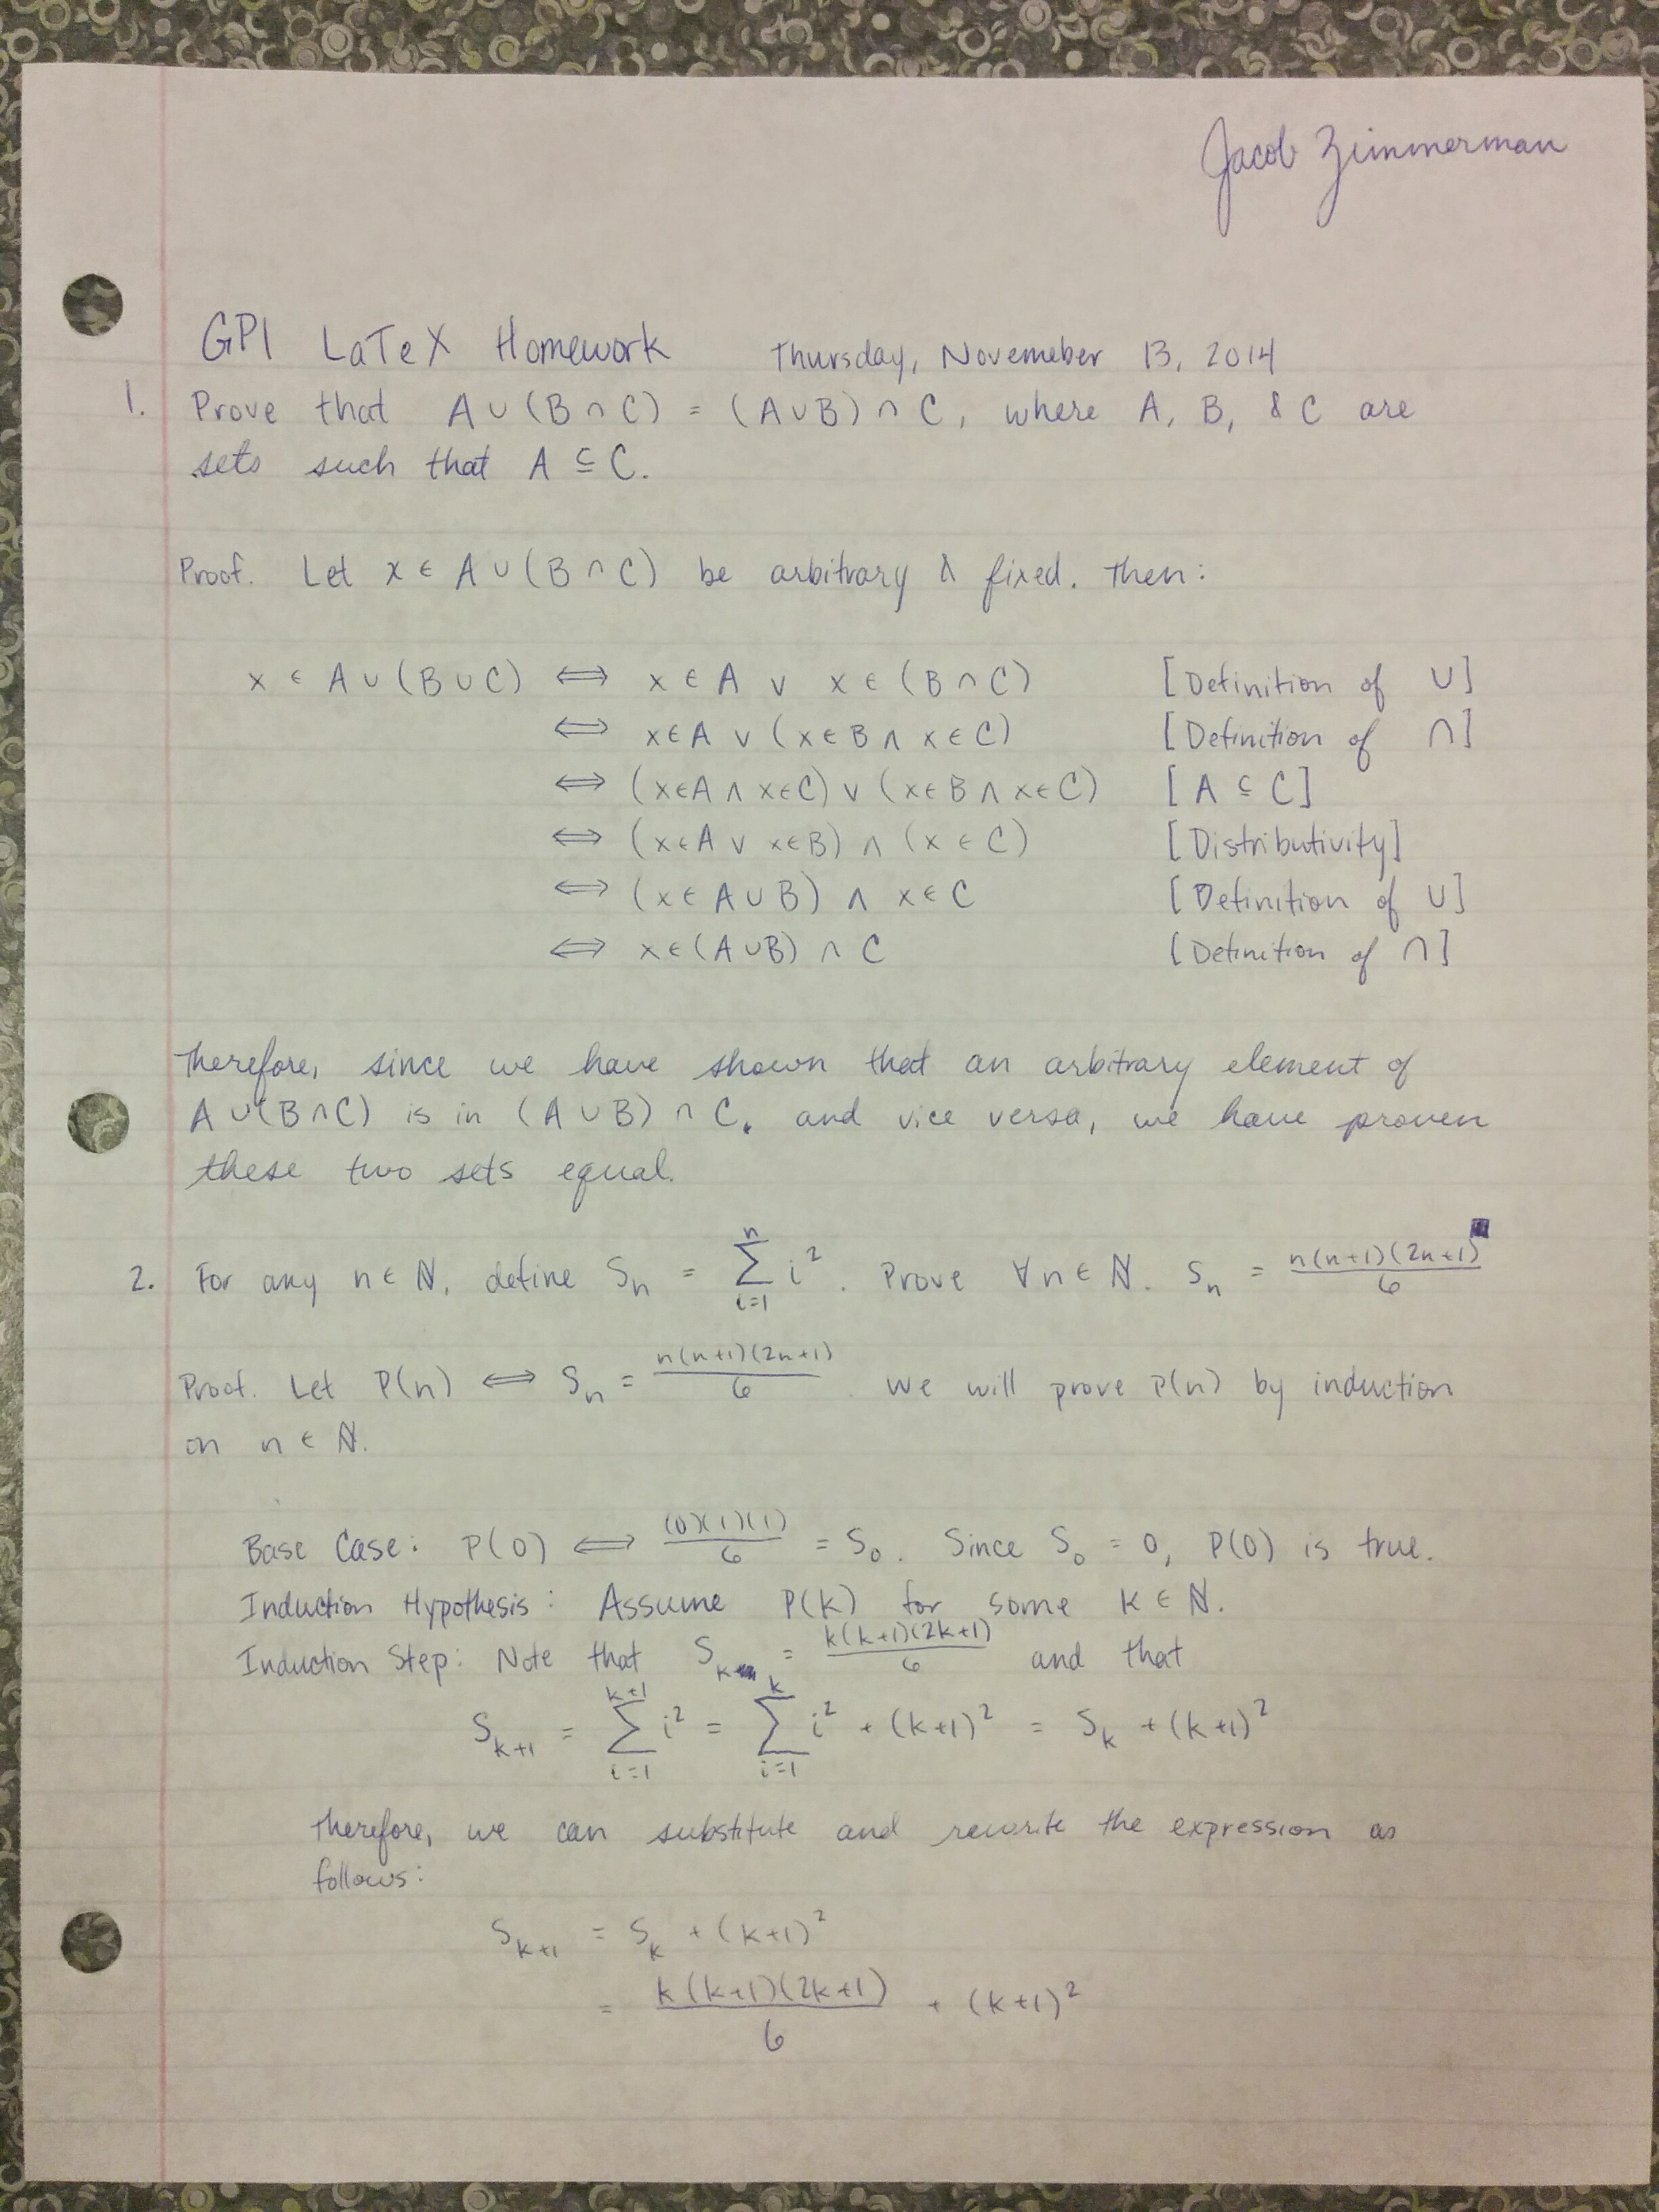 Jacob Zimmerman
GPI LaTeX Homework Thursday, Novemeber 13, 2014
1. Prove that A ∪ (B ∩ C) = (A ∪ B) ∩ C, where A, B, & C are
sets such that A ⊆ C.
Proof. Let x ∈ A ∪ (B ∩ C) be arbitrary & fixed. Then:
x ∈ A ∪ (B ∪ C) ⟺ x ∈ A ∨ x ∈ (B ∩ C) [Definition of ∪]
⟺ x ∈ A ∨ (x ∈ B ∧ x ∈ C) [Definition of ∩]
⟺ (x ∈ A ∧ x ∈ C) ∨ (x ∈ B ∧ x ∈ C) [A ⊆ C]
⟺ (x ∈ A ∨ x ∈ B) ∧ (x ∈ C) [Distributivity]
⟺ (x ∈ A ∪ B) ∧ x ∈ C [Definition of ∪]
⟺ x ∈ (A ∪ B) ∩ C [Definition of ∩]
Therefore, since we have shown that an arbitrary element of
A ∪ (B ∩ C) is in (A ∪ B) ∩ C, and vice versa, we have proven
these two sets equal.
2. For any n ∈ ℕ, define S_n = ∑_{i=1}^{n} i². Prove ∀n ∈ ℕ. S_n = n(n+1)(2n+1)/6
Proof. Let P(n) ⟺ S_n = n(n+1)(2n+1)/6. We will prove P(n) by induction
on n ∈ ℕ.
Base Case: P(0) ⟺ (0)(1)(1)/6 = S_0. Since S_0 = 0, P(0) is true.
Induction Hypothesis: Assume P(k) for some k ∈ ℕ.
Induction Step: Note that S_k = k(k+1)(2k+1)/6 and that
S_{k+1} = ∑_{i=1}^{k+1} i² = ∑_{i=1}^{k} i² + (k+1)² = S_k + (k+1)²
Therefore, we can substitute and rewrite the expression as
follows:
S_{k+1} = S_k + (k+1)²
= k(k+1)(2k+1)/6 + (k+1)²